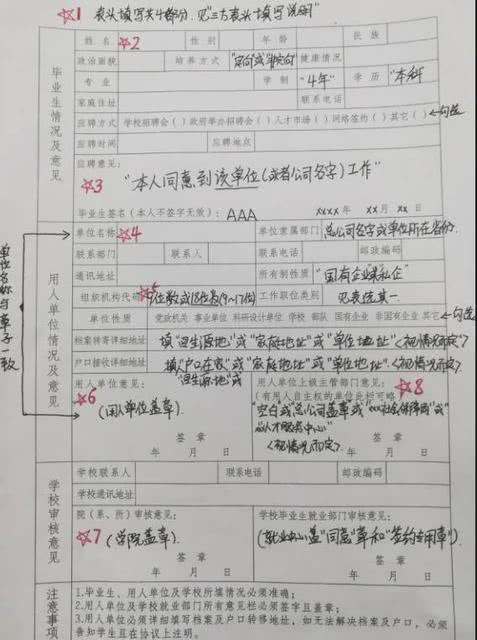 ☆1 表头填写共4部分.见"三方表头填写说明"
姓名 ☆2 性别 年龄 民族
政治面貌 培养方式 "定向"或"非定向" 健康情况
专业 学制 "4年" 学历 "本科"
家庭住址 联系电话
应聘方式 学校招聘会( )政府举办招聘会( )人才市场( )网络签约( )其它( ) 勾选
应聘时间 应聘地点
应聘意见:
☆3 "本人同意到该单位(或者公司名字)工作"
毕业生签名(本人不签字无效): AAA xxxx年 xx月 xx日
毕业生情况及意见
单位名称 ☆4 单位隶属部门 总公司名字或单位所在省份.
联系部门 联系人 联系电话 邮政编码
通讯地址 所有制性质 "国有企业或私企"
组织机构代码 ☆5 9位数或18位的(9~17位) 工作职位类别 见表选其一
单位性质 党政机关 事业单位 科研设计单位 学校 部队 国有企业 非国有企业 其它 勾选
档案转寄详细地址 填"回生源地"或"家庭地址"或"单位地址"<视情况而定>
户口接收详细地址 填"户口在家"或"家庭地址"或"单位地址".<视情况而定>
"回生源地"或
用人单位意见: 用人单位上级主管部门意见:
☆6 (有用人自主权的单位此栏可略) ☆8
(用人单位盖章) "空白或"总公司盖章或"xxx社会保障局"或
"xx人才服务中心"
<视情况而定>
签章 签章
年 月 日 年 月 日
用人单位情况及意见
单位名称与章子一致
学校联系人 联系电话 邮政编码
学校通讯地址
院(系、所)审核意见: 学校毕业生就业部门审核意见:
☆7 (学院盖章) (就业中心盖"同意"章和"签约专用章")
签章 签章
年 月 日 年 月 日
学校审核意见
注意事项
1.毕业生、用人单位及学校所填情况必须准确;
2.用人单位及学校就业部门所有意见栏必须签字且盖章;
3.用人单位必须详细填写档案及户口转移地址,如无法解决档案及户口,必须
告知学生且在协议上注明。